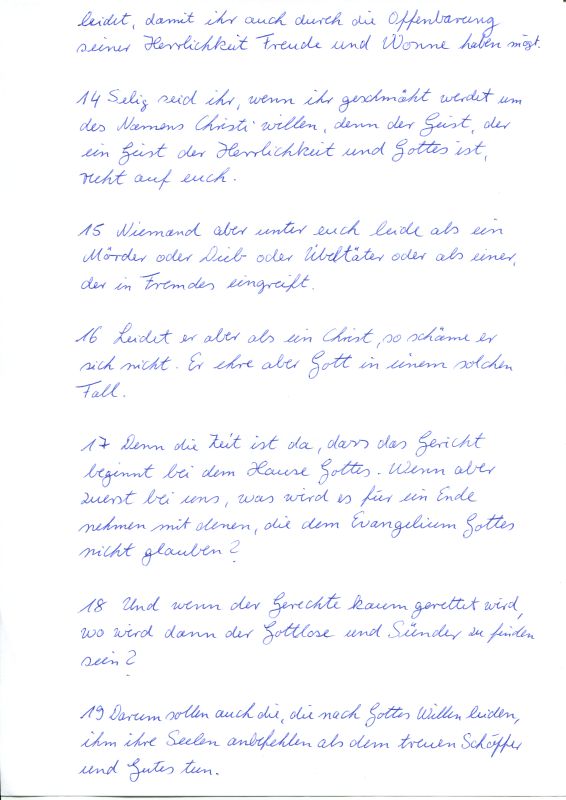 leidet, damit ihr auch durch die Offenbarung
seiner Herrlichkeit Freude und Wonne haben mögt.
14 Selig seid ihr, wenn ihr geschmäht werdet um
des Namens Christi willen, denn der Geist, der
ein Geist der Herrlichkeit und Gottes ist,
ruht auf euch.
15 Niemand aber unter euch leide als ein
Mörder oder Dieb oder Übeltäter oder als einer,
der in Fremdes eingreift.
16 Leidet er aber als ein Christ, so schäme er
sich nicht. Er ehre aber Gott in einem solchen
Fall.
17 Denn die Zeit ist da, dass das Gericht
beginnt bei dem Hause Gottes. Wenn aber
zuerst bei uns, was wird es für ein Ende
nehmen mit denen, die dem Evangelium Gottes
nicht glauben?
18 Und wenn der Gerechte kaum gerettet wird,
wo wird dann der Gottlose und Sünder zu finden
sein?
19 Darum sollen auch die, die nach Gottes Willen leiden,
ihm ihre Seelen anbefehlen als dem treuen Schöpfer
und Gutes tun.